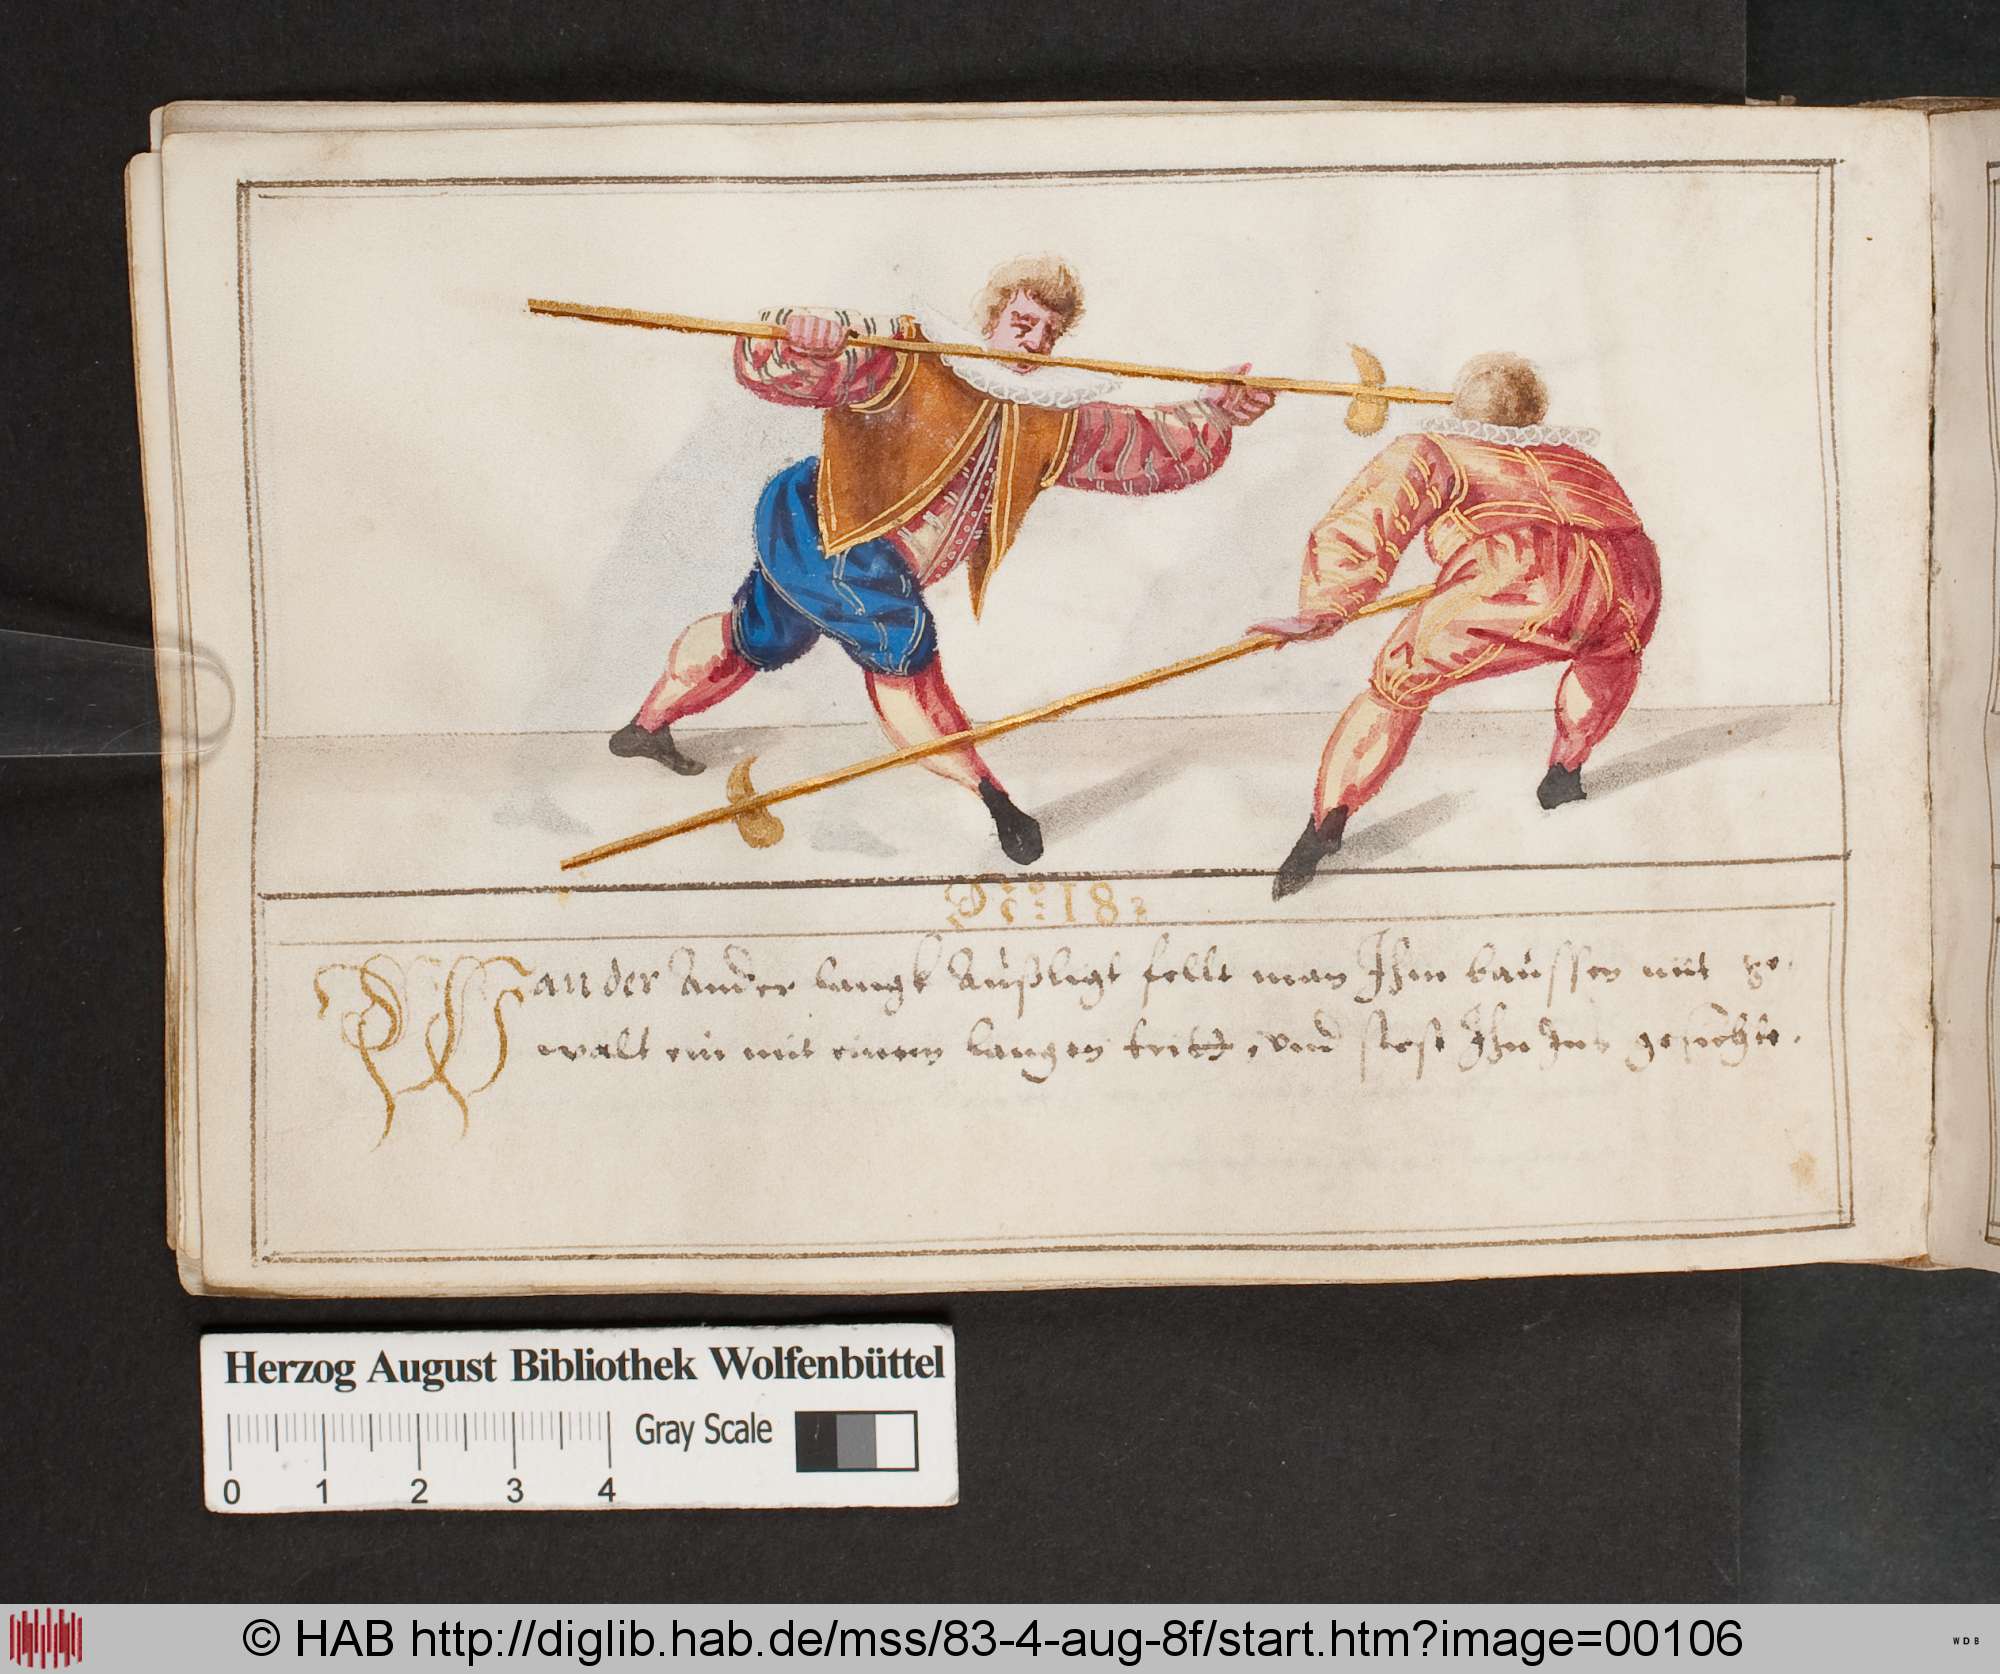 No: 18:
Wan der Ander langk Außligt fellt man Ihm baussen mit ge-
walt ein mit einem langen tritt, vnd stost Ihn Ins gesichte.
Herzog August Bibliothek Wolfenbüttel
Gray Scale
0 1 2 3 4
© HAB http://diglib.hab.de/mss/83-4-aug-8f/start.htm?image=00106
WDB